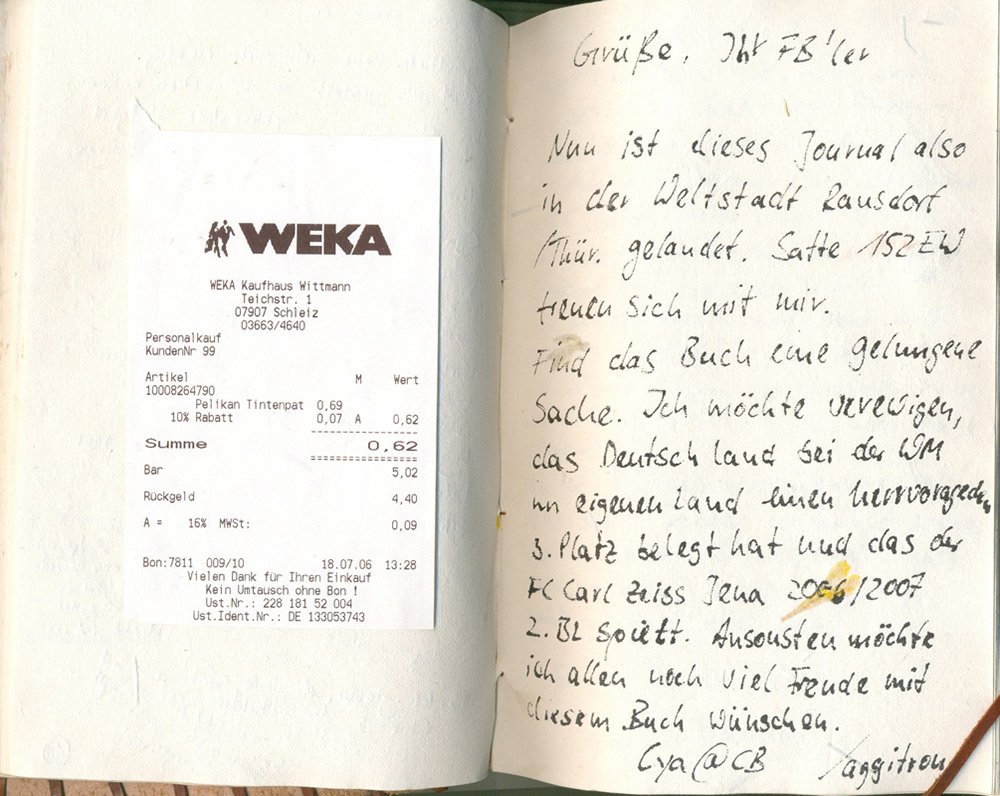 WEKA
WEKA Kaufhaus Wittmann
Teichstr. 1
07907 Schleiz
03663/4640
Personalkauf
KundenNr 99
Artikel M Wert
10008264790
Pelikan Tintenpat 0,69
10% Rabatt 0,07 A 0,62
Summe 0,62
Bar 5,02
Rückgeld 4,40
A = 16% MWSt: 0,09
Bon:7811 009/10 18.07.06 13:28
Vielen Dank für Ihren Einkauf
Kein Umtausch ohne Bon !
Ust.Nr.: 228 181 52 004
Ust.Ident.Nr.: DE 133053743
Grüße, Ihr FB'ler
Nun ist dieses Journal also
in der Weltstadt Rausdorf
/Thür. gelandet. Satte 152 EW
freuen sich mit mir.
Find das Buch eine gelungene
Sache. Ich möchte verewigen,
das Deutschland bei der WM
im eigenen Land einen
3. Platz belegt hat und das der
FC Carl Zeiss Jena 2006/2007
2. BL spielt. Ansonsten möchte
ich allen noch viel Freude mit
diesem Buch wünschen.
Cya@CB